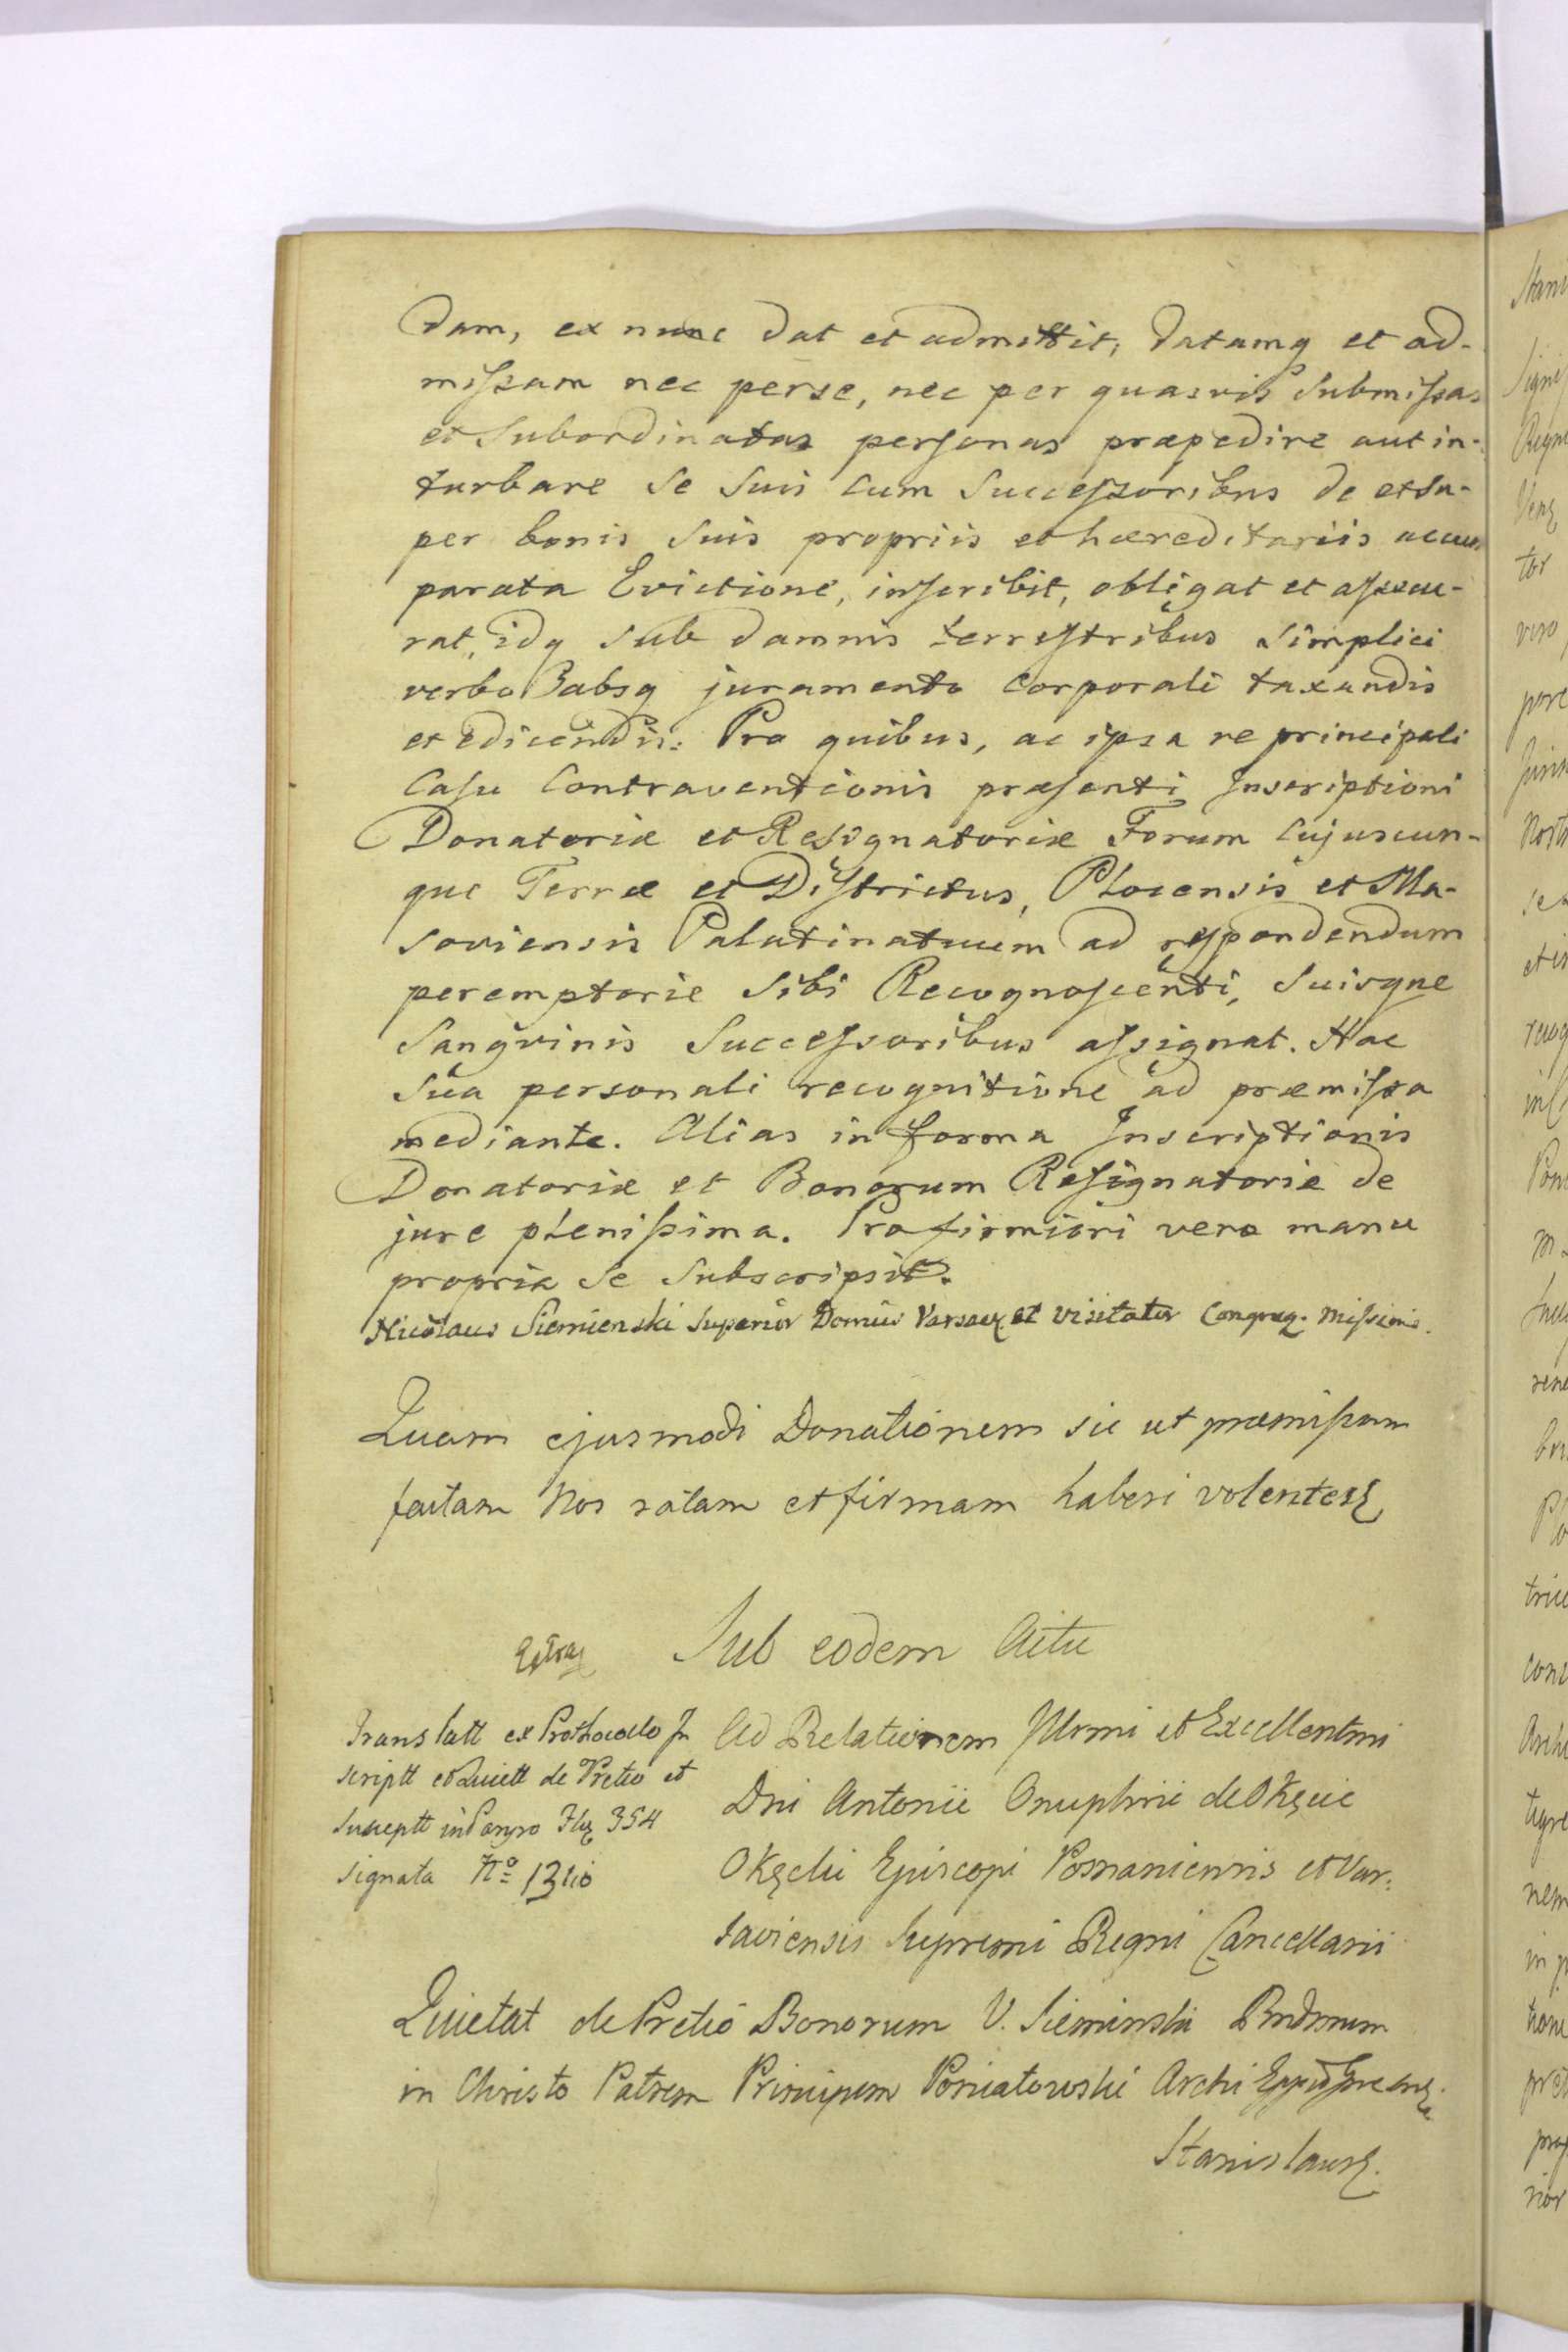 dam, ex nunc dat et admittit, datamq et ad-
missam nec per se, nec per quasvis Submissas
et Subordinatas personas praepedire aut in-
turbare Se Suis cum Successoribus de et Su-
per bonis Suis propriis et haereditariis
parata Evictione, inscribit, obligat et assecu-
rat, idq Sub damnis terrestribus Simplici
verbo absq juramento Corporali taxandis
et edicendis: Pro quibus, ac ipsa re principali
Casu Contraventionis praesenti Inscriptioni
Donatoriæ et Resignatoriæ Forum Cujuscun-
que Terræ et Districtus, Plocensis et Ma-
soviensis Palatinatuum ad respondendum
peremptorie Sibi Recognoscenti, Suisque
Sangvinis Successoribus assignat. Hac
Sua personali recognitione ad præmissa
mediante. Alias in forma Inscriptionis
Donatoriæ et Bonorum Resignatoriæ de
jure plenissima. Pro firmiori vero manu
propria Se Subscripsit.
Nicolaus Siemienski Superior Domus Varsav et Visitator Congreg. Missionis.
Quam ejusmodi Donationem sic ut præmissum
factam Nos ratam et firmam haberi volentes
Sub eodem Actu
Translatt ex Prothocollo In
scriptt et Quiett de Pretio et
Susceptt
354
signata No
Ad Relationem Illrmi et Excellentmi
Dni Antonii Onuphrii de Okęcie
Okęcki Episcopi Posnaniensis et Var:
saviensis Supremi Regni Cancellarii
Quietat de Pretio Bonorum V. Sieminski Rndmum
in Christo Patrem Principem Poniatowski Archi
Stanislaus